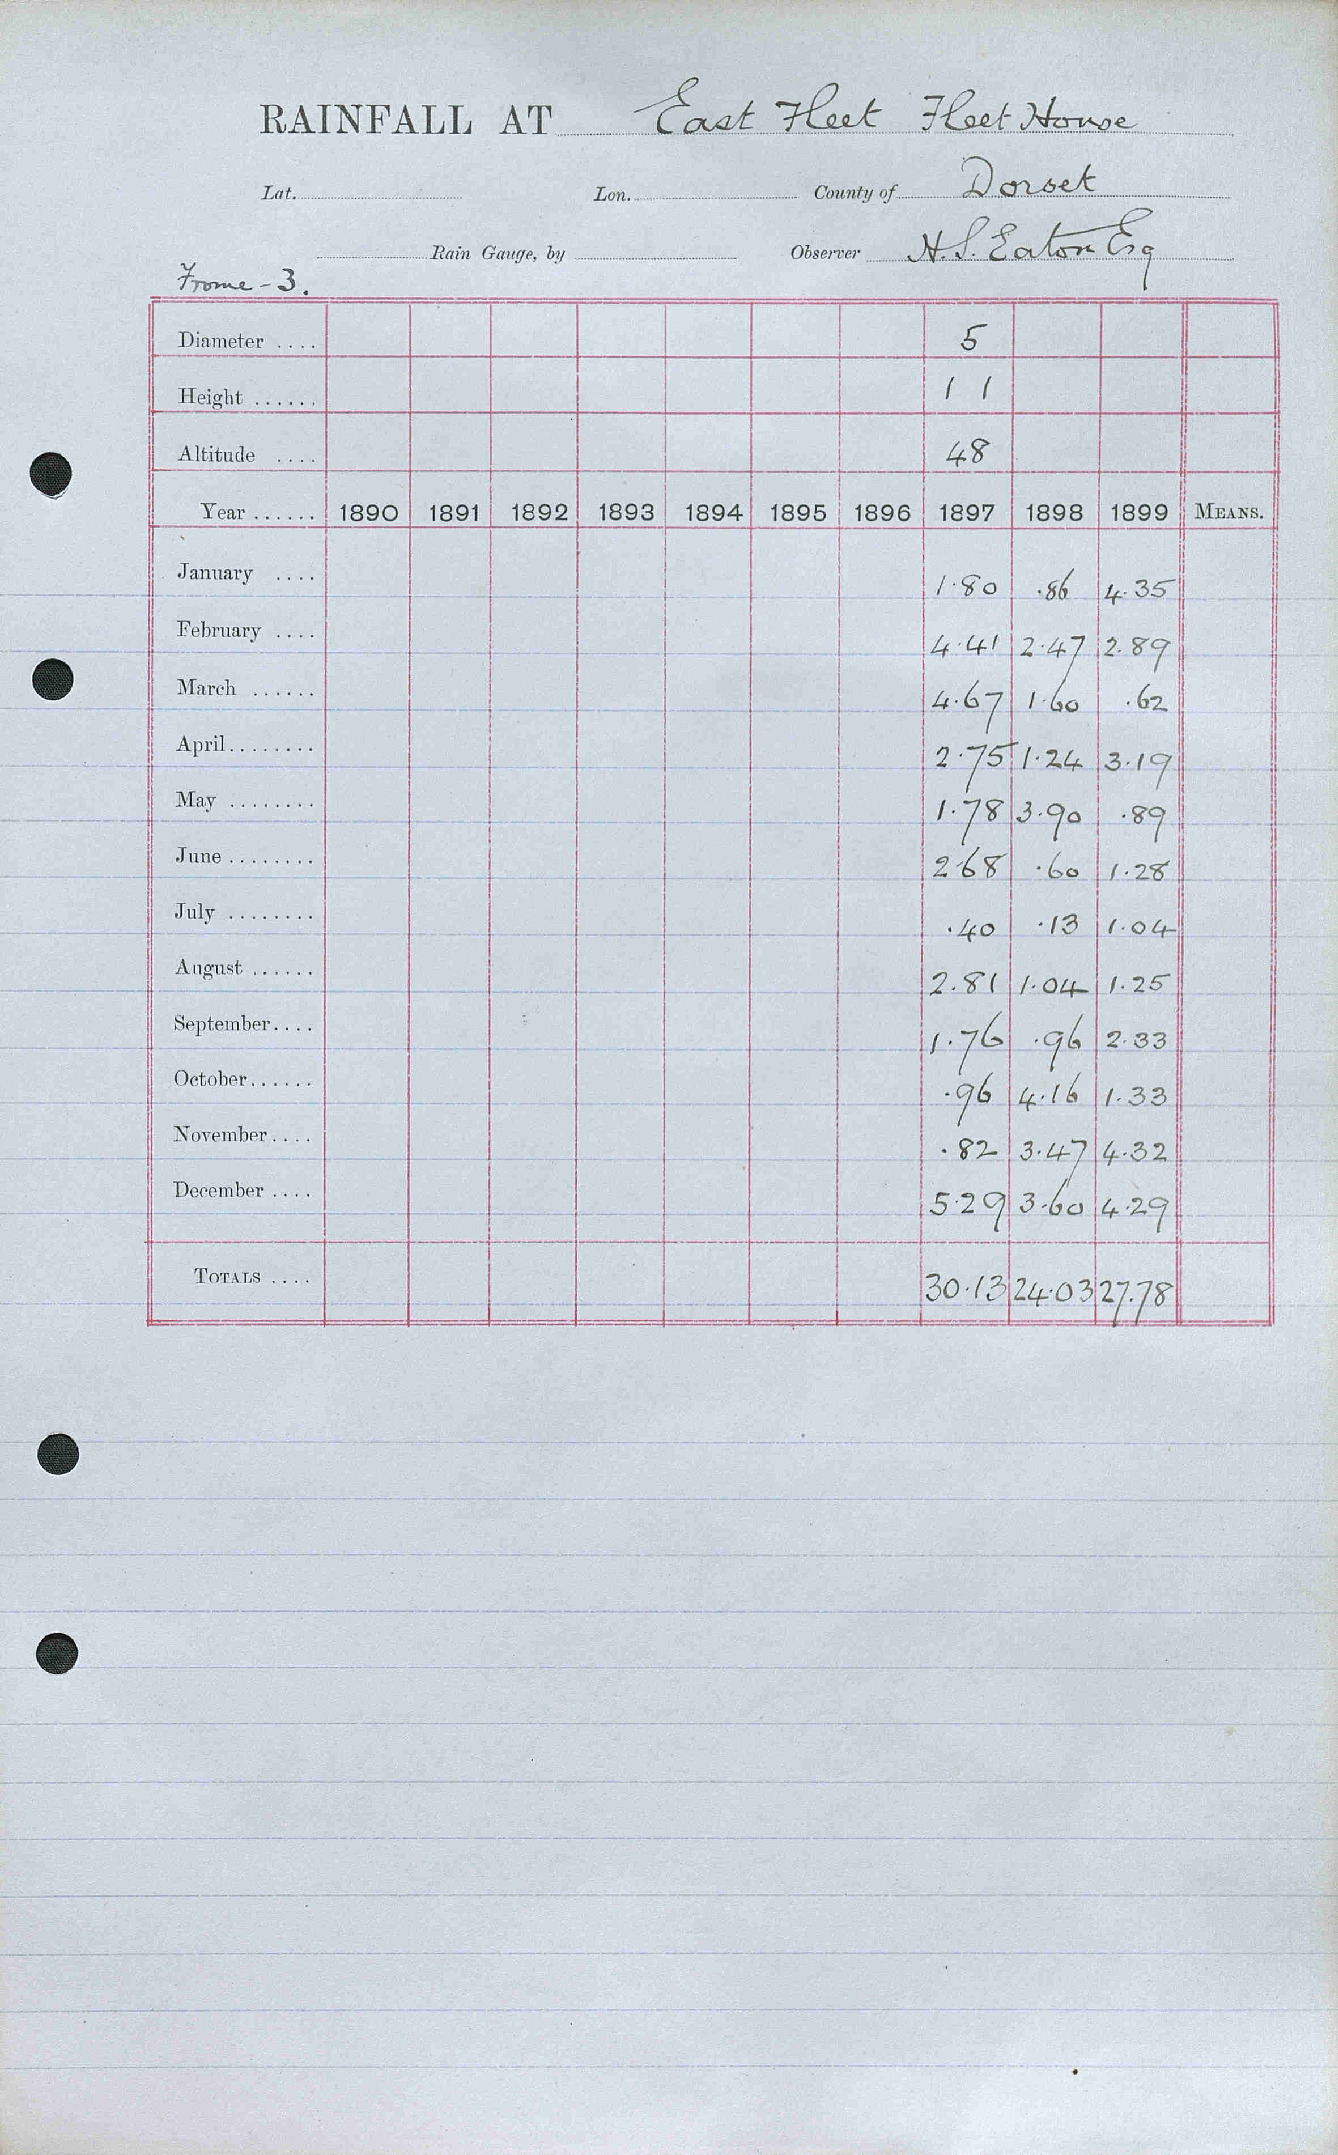 RAINFALL AT East Fleet Fleet House
Lat. Lon. County of Dorset
Rain Gauge, by Observer H. S. Eaton Esq
Frome - 3.
Diameter .... 5
Height ...... 1 1
Altitude .... 48
Year ...... 1890 1891 1892 1893 1894 1895 1896 1897 1898 1899 MEANS.
January .... 1.80 .86 4.35
February .... 4.41 2.47 2.89
March ...... 4.67 1.60 .62
April........ 2.75 1.24 3.19
May ........ 1.78 3.90 .89
June ........ 2.68 .60 1.28
July ........ .40 .13 1.04
August ...... 2.81 1.04 1.25
September.... 1.76 .96 2.33
October...... .96 4.16 1.33
November.... .82 3.47 4.32
December .... 5.29 3.60 4.29
TOTALS .... 30.13 24.03 27.78